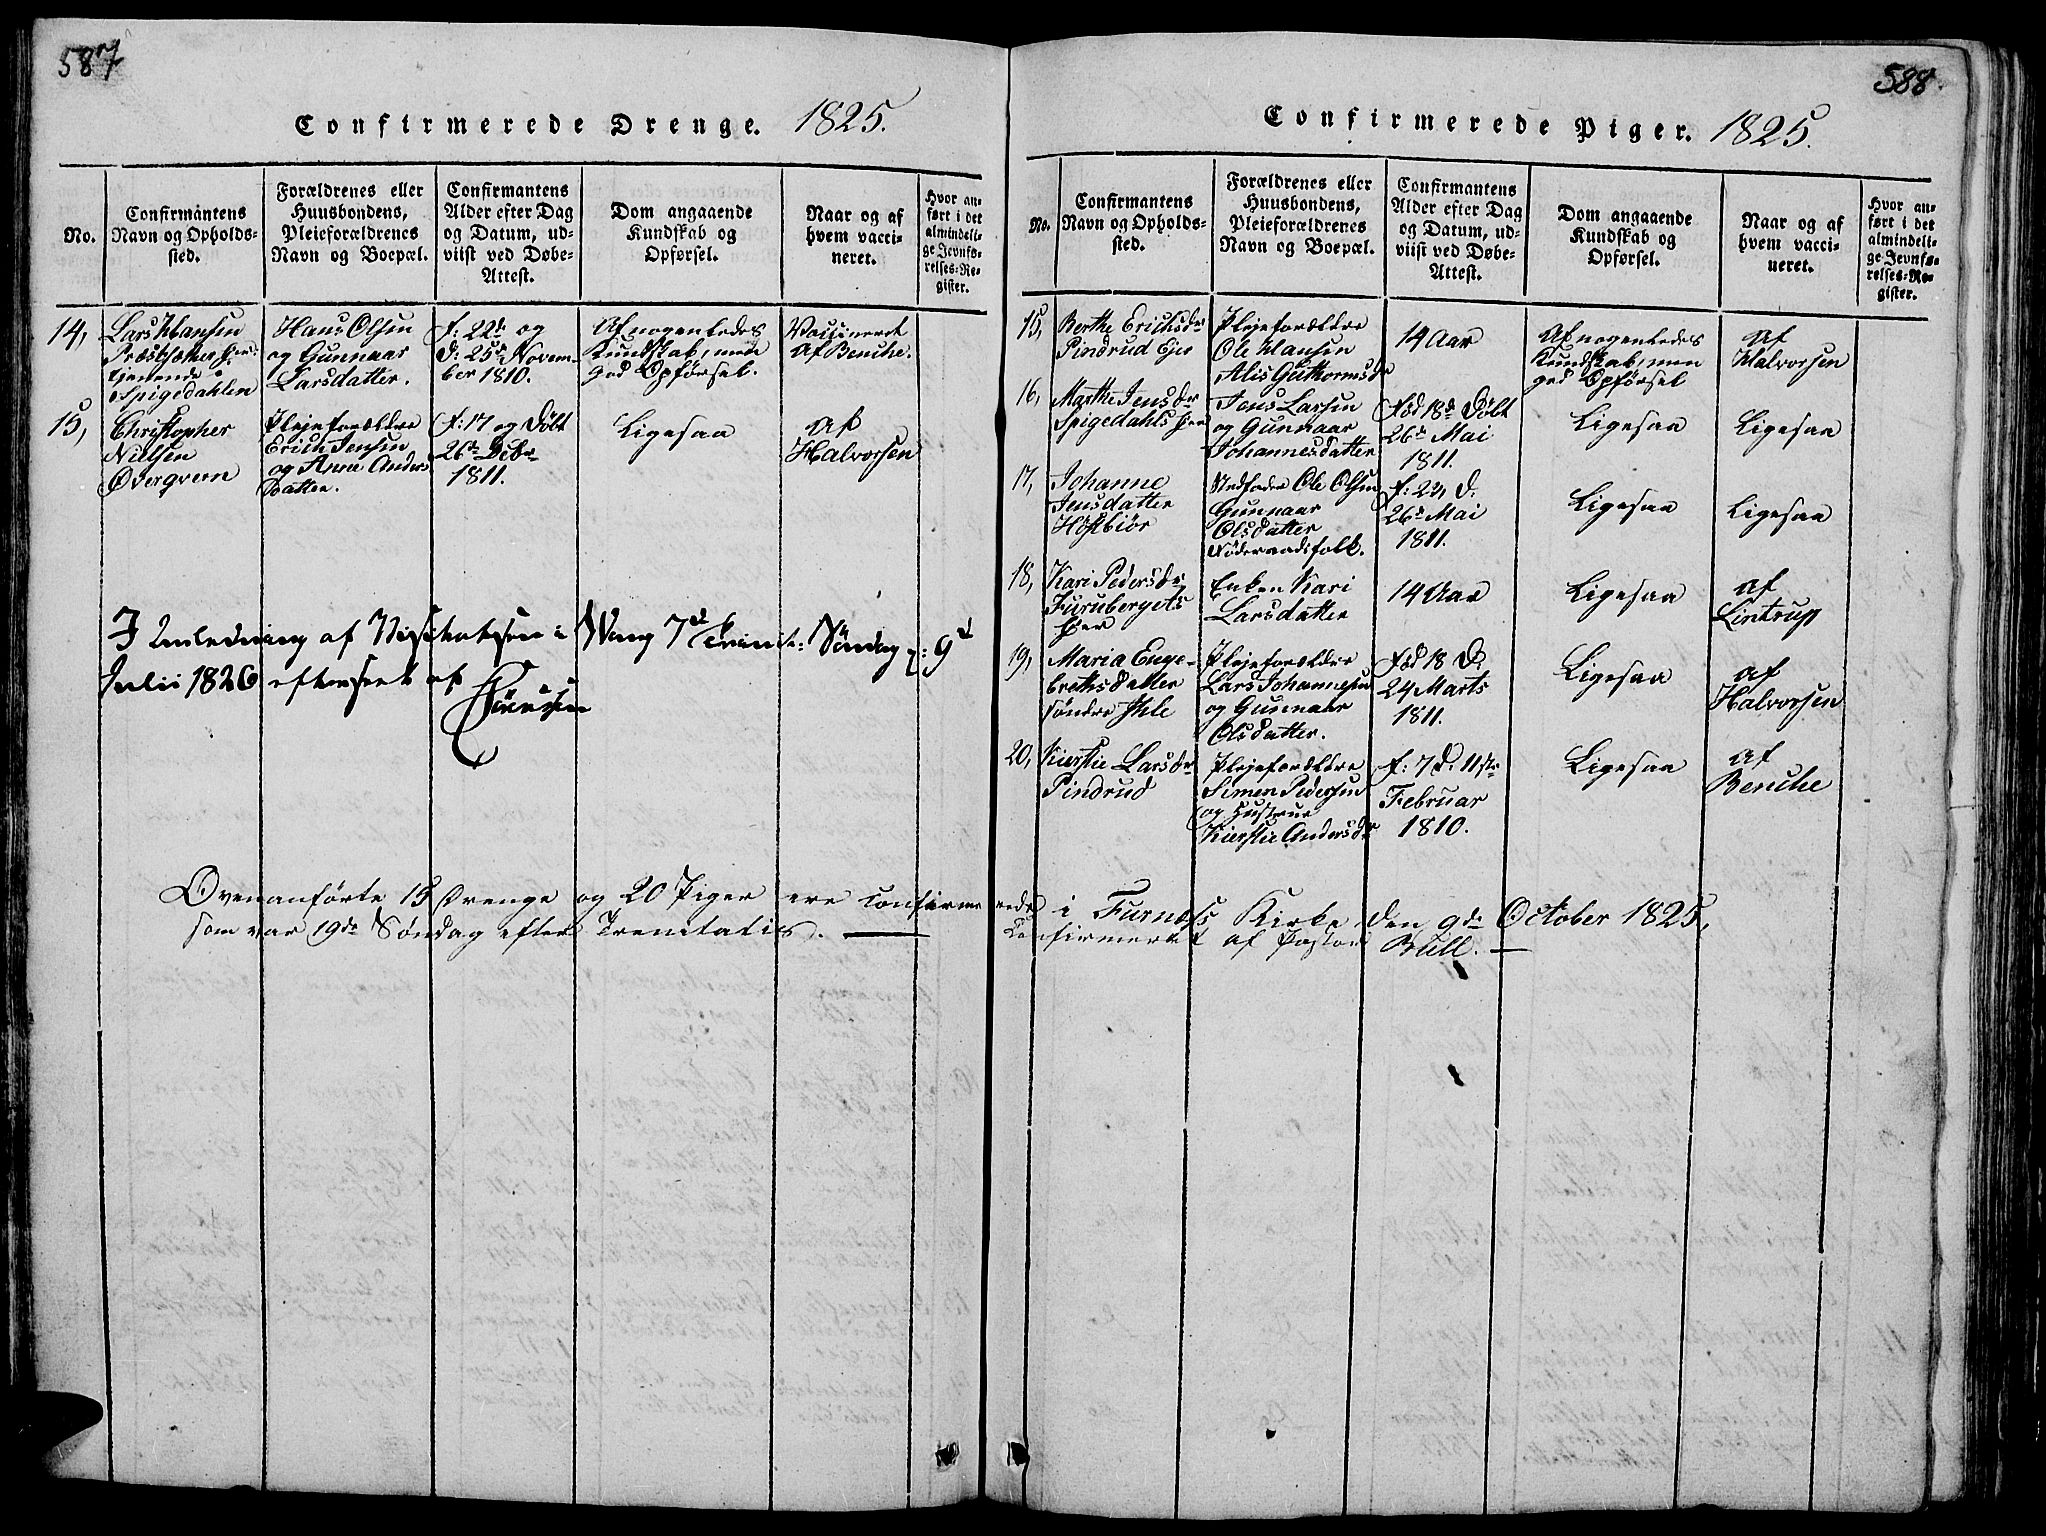 587
Confirmerede Drenge. 1825.
No.
Confirmantens
Navn og Opholds-
sted.
Forældrenes eller
Huusbondens,
Pleieforældrenes
Navn og Boepæl.
Confirmantens
Alder efter Dag
og Datum, ud-
viist ved Døbe-
Attest.
Dom angaaende
Kundskab og
Opførsel.
Naar og af
hvem vacci-
neret.
Hvor an-
ført i det
almindeli-
ge Jevnfø-
relses-Re-
gister.
14,
Lars Hansen
tjenende
Spigedahlen
Hans Olsen
og Gunnaar
Larsdatter.
f: 22de og
d: 25de Novem-
ber 1810.
Af nogenledes
Kundskab, men
god Opførsel.
Vaccineret
af Benche.
15,
Christopher
Nielsen
Overqvern
Plejeforældre
Erich Jensen
og Anne Anders
datter.
f: 17 og døbt
26de Decbr
1811.
Ligesaa
af
Halvorsen
I Anledning af Visitatsen i Wang 7de Trinit: Søndag 9d
Julii 1826 efterseet af
Sørensen
Ovenanførte 15 Drenge og 20 Piger ere confirme
som var 19de Søndag efter Trenitatis.
588.
Confirmerede Piger. 1825.
No.
Confirmantens
Navn og Opholds-
sted.
Forældrenes eller
Huusbondens,
Pleieforældrenes
Navn og Boepæl.
Confirmantens
Alder efter Dag
og Datum, ud-
viist ved Døbe-
Attest.
Dom angaaende
Kundskab og
Opførsel.
Naar og af
hvem vacci-
neret.
Hvor an-
ført i det
almindeli-
ge Jevnfø-
relses-Re-
gister.
15,
Berthe Erichsdr
Pindrud Eje
Plejeforældre
Ole Hansen
Alis Guthormsdr
14 Aar
Af nogenledes
Kundskab, men
god Opførsel
af
Halvorsen
16,
Marthe Jensdr
Spigedahls Eier
Jens Larsen
og Gunnaar
Johannesdatter
Fød 18de Døbt
26de Mai
1811.
Ligesaa
Ligesaa
17,
Johanne
Jensdatter
Høstbiør
Stedfader Ole Olsen
Gunnaar
Olsdatter
f: 23, d.
26de Mai
1811.
Ligesaa
Ligesaa
18,
Kari Pedersdr
Furubergets
Eier
Enken Kari
Larsdatter
14 Aar
Ligesaa
af
Lintrup
19,
Maria Enge-
brethsdatter
søndre Ihle
Plejeforældre
Lars Johannesen
og Gunnaar
Olsdatter.
Fød 18 D.
24 Marts
1811.
Ligesaa
af
Halvorsen
20,
Kierstie Larsdr
Pindrud
Plejeforældre
Simen Pedersen
og Hustrue
Kierstie Andersdr
f: 7 d. 11te
Februar
1810.
Ligesaa
af
Benche
rede i Furnæss Kirke den 9de October 1825,
Confirmeret af Pastor Bull.